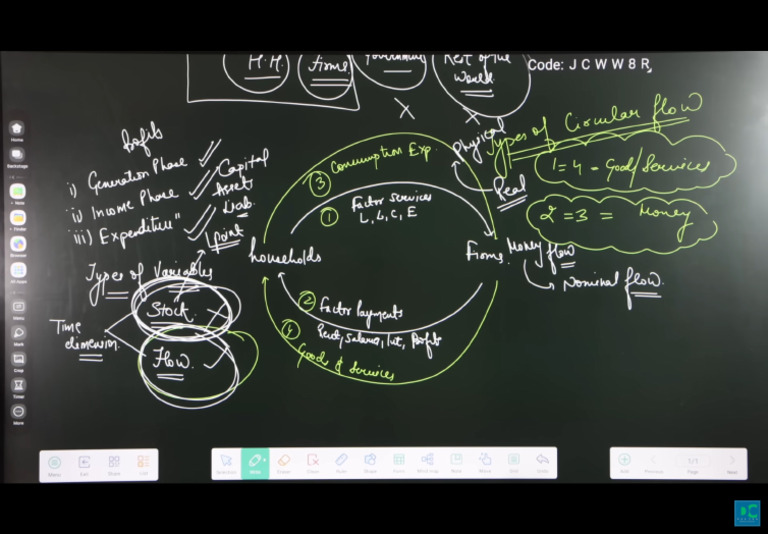 H.H.
firms
Government
Rest of the
World
Code: J C W W 8 R,
Types of Circular flow
1 = 4 = Good/Services
2 = 3 = Money
Physical
Real
Money flow
Nominal flow.
Profits
i) Generation Phase
ii) Income Phase
iii) Expenditure"
Capital
Assets
Liab.
1 Point
Types of Variables
Stock
Flow
Time
dimension
③ Consumption Exp.
① Factor Services
L, L, C, E
households
Firms.
② Factor Payments
Rent, Salaries, Int, Profits
④ Goods & Services
Home
Backstage
Note
Finder
Browser
All Apps
Menu
Mark
Timer
More
Menu
Exit
Share
Selection
Eraser
Clear
Shape
Mind map
Undo
Add
Previous
1/1
Page
Next